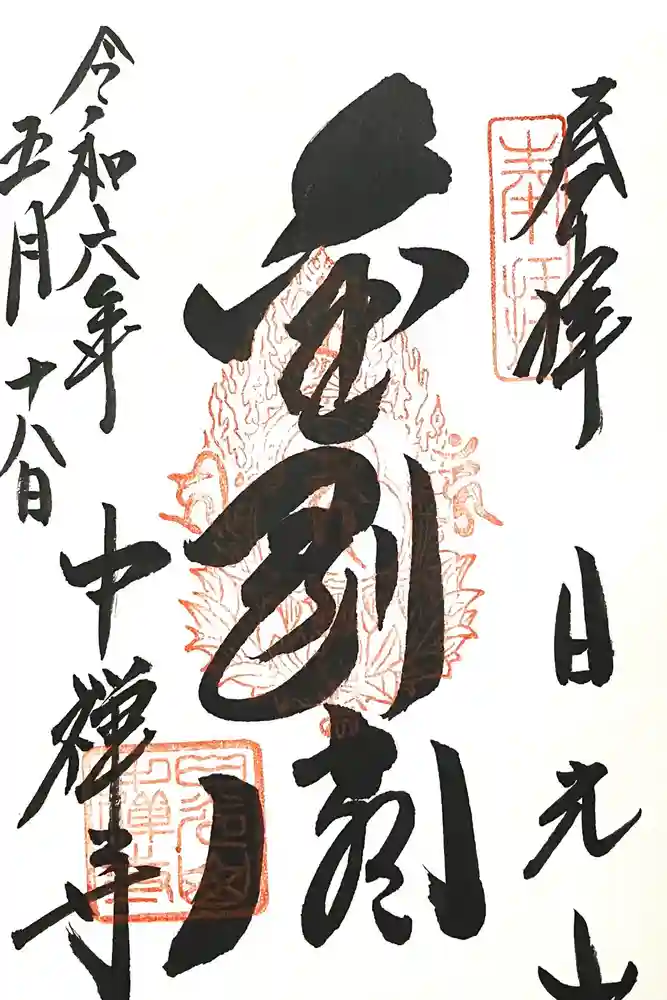 奉拝
日光山
金剛
令和六年
五月十八日
中禅寺